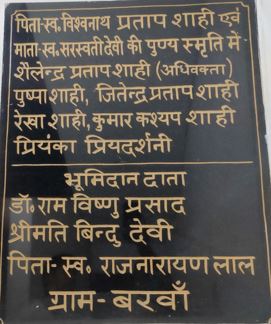 पिता-स्व. विश्वनाथ प्रताप शाही एवं
माता-स्व. सरस्वती देवी की पुण्य स्मृति में-
शैलेन्द्र प्रताप शाही (अधिवक्ता)
पुष्पा शाही, जितेन्द्र प्रताप शाही
रेखा शाही, कुमार कश्यप शाही
प्रियंका प्रियदर्शनी
भूमिदान दाता
डॉ॰ राम विष्णु प्रसाद
श्रीमति बिन्दु देवी
पिता- स्व॰ राजनारायण लाल
ग्राम- बरवाँ